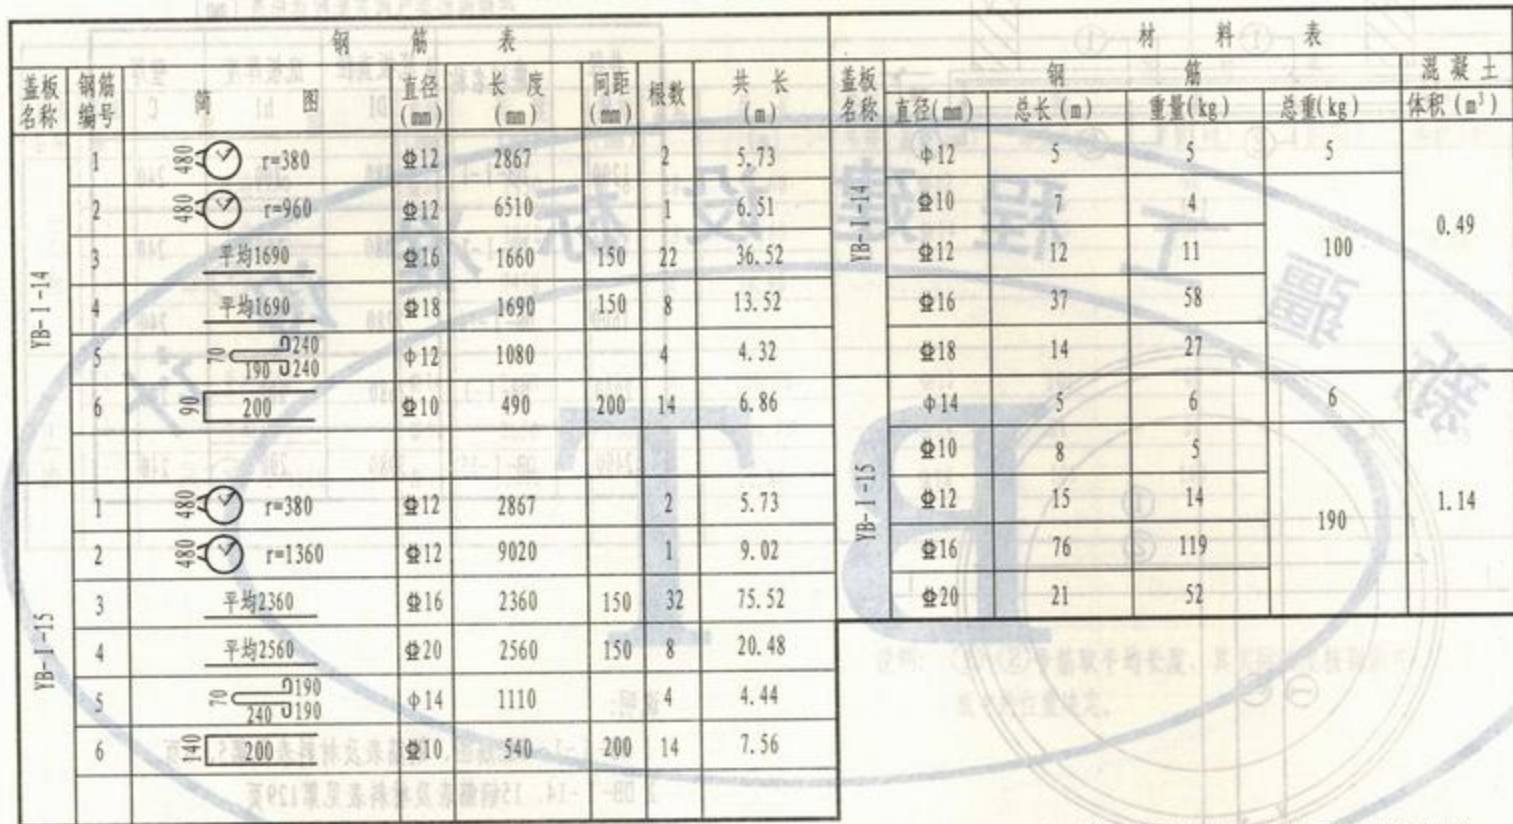 钢 筋 表
盖板名称 钢筋编号 简 图 直径(mm) 长 度(mm) 间距(mm) 根数 共 长(m)
YB-I-14
1 480 r=380 ⏀12 2867 2 5.73
2 480 r=960 ⏀12 6510 1 6.51
3 平均1690 ⏀16 1660 150 22 36.52
4 平均1690 ⏀18 1690 150 8 13.52
5 70 190 240 240 φ12 1080 4 4.32
6 90 200 ⏀10 490 200 14 6.86
YB-I-15
1 480 r=380 ⏀12 2867 2 5.73
2 480 r=1360 ⏀12 9020 1 9.02
3 平均2360 ⏀16 2360 150 32 75.52
4 平均2560 ⏀20 2560 150 8 20.48
5 70 240 190 190 φ14 1110 4 4.44
6 140 200 ⏀10 540 200 14 7.56
材 料 表
盖板名称 钢 筋 混凝土
直径(mm) 总长(m) 重量(kg) 总重(kg) 体积(m³)
YB-I-14
φ12 5 5 5
⏀10 7 4
⏀12 12 11 100 0.49
⏀16 37 58
⏀18 14 27
YB-I-15
φ14 5 6 6
⏀10 8 5
⏀12 15 14 190 1.14
⏀16 76 119
⏀20 21 52
新疆工程建设标准